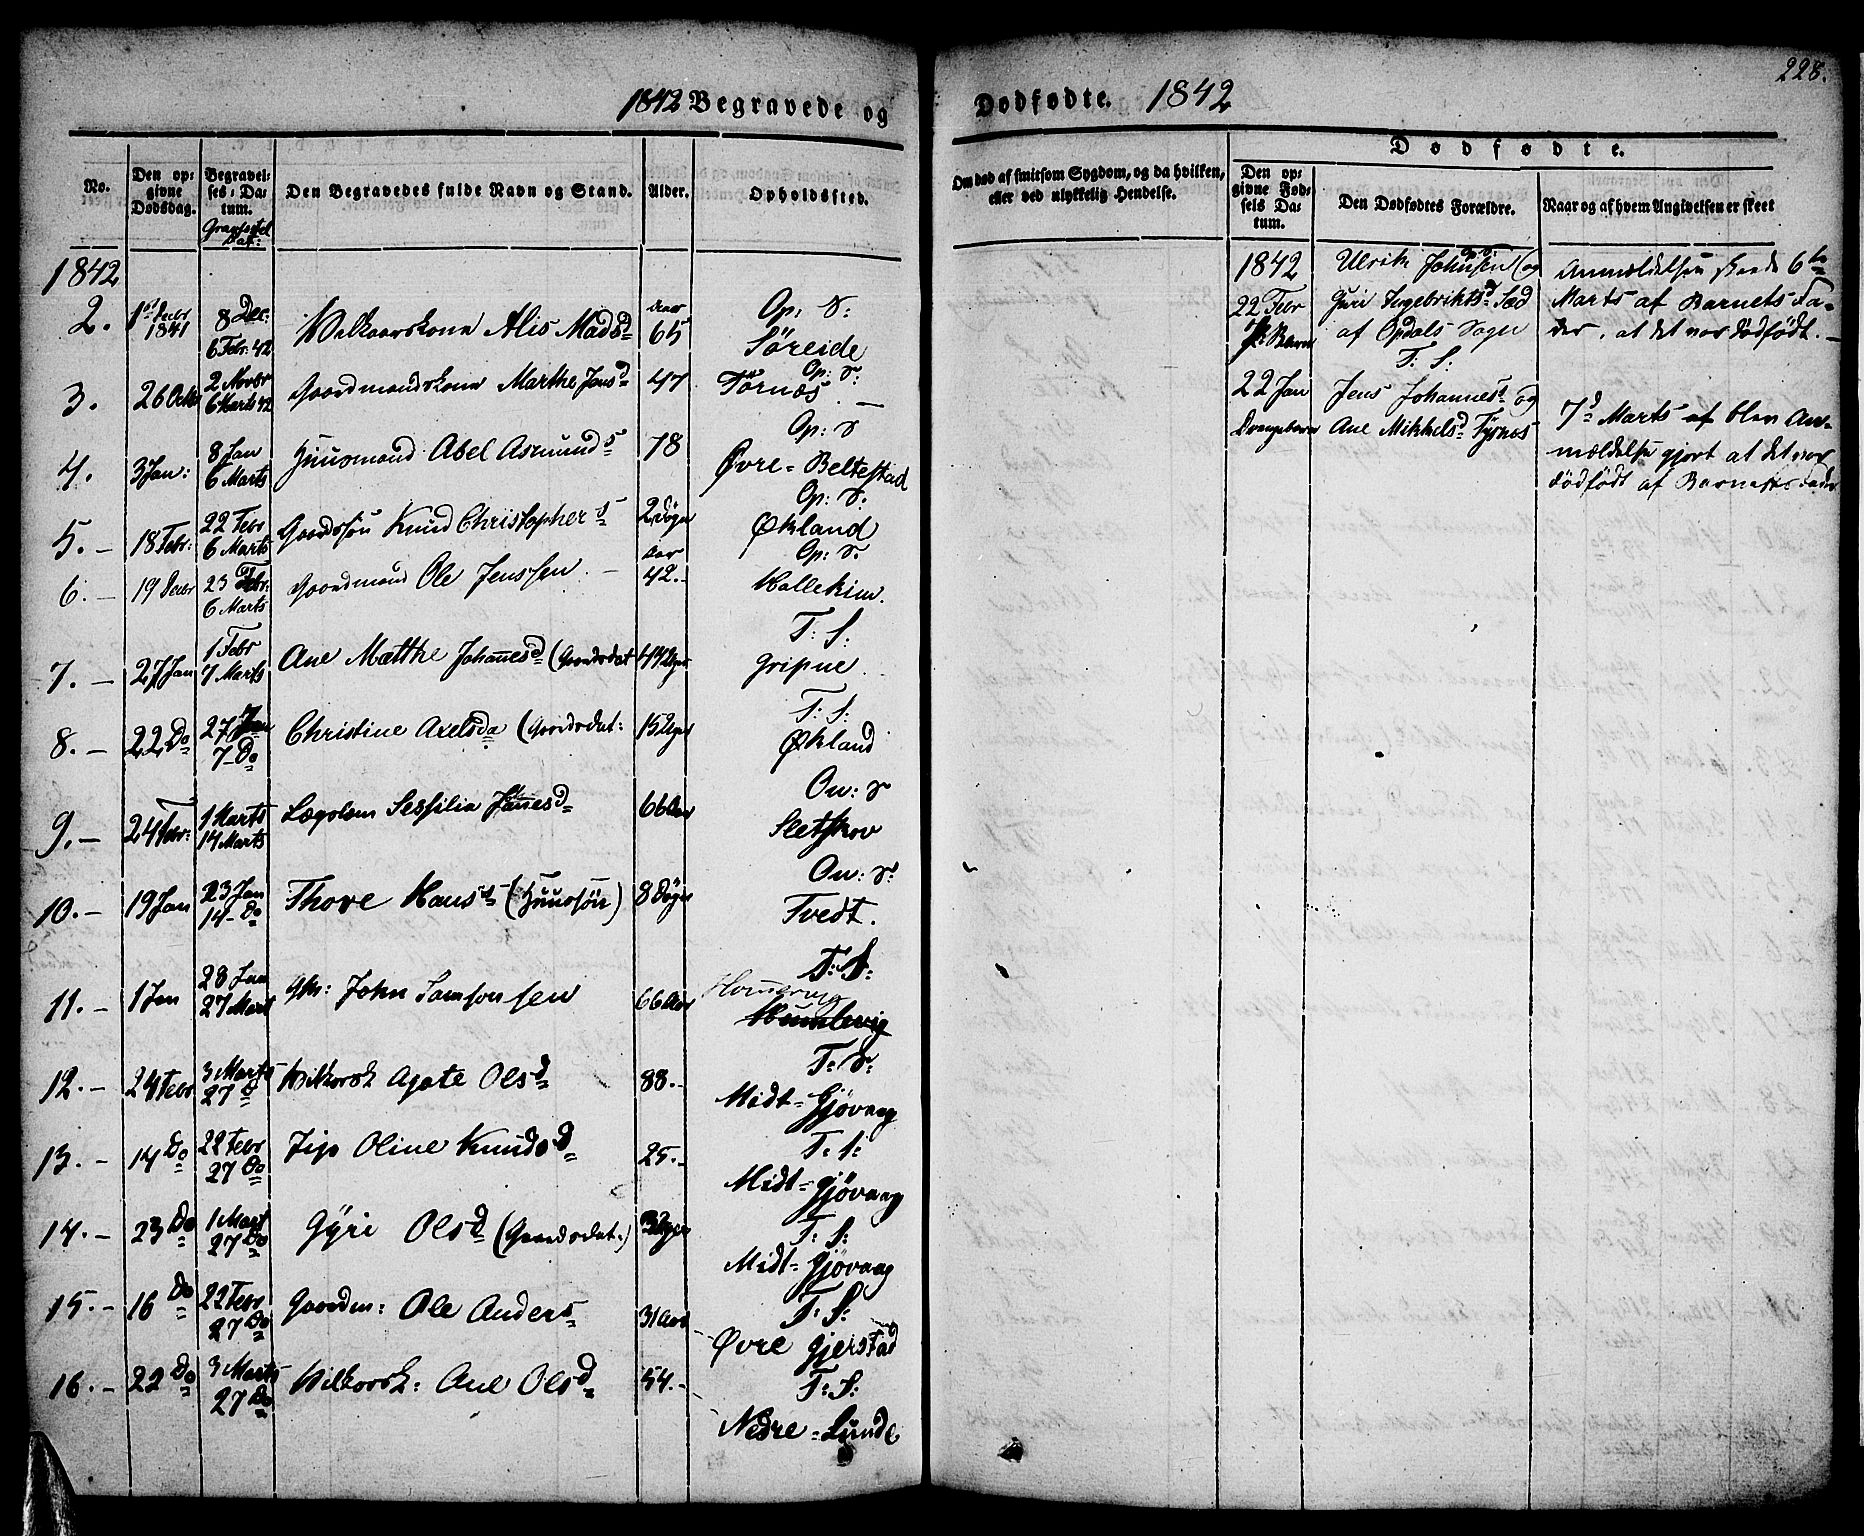 228.
1842 Begravede og
Dødfødte. 1842
No.
Den opgivne Dødsdag.
Begravelses-Datum.
Den Begravedes fulde Navn og Stand.
Alder.
Opholdssted.
Om død af smitsom Sygdom, og da hvilken,
eller ved ulykkelig Hendelse.
Dødfødte.
Den opgivne Fødsels Datum.
Den Dødfødtes Forældre.
Naar og af hvem Angivelsen er skeet
1842
2. 1841 8 Dec: 6 Febr. 42 Alis Madsd 65 Aar Op: S: Søreide
3. 26 Octb 2 Novbr 6 Marts 42 Gaardmandskone Marthe Jansd 47 Op: S: Tørnæs
4. 3 Jan: 8 Jan 6 Marts Huusmand Abel Asmunds 78 Op: S Øvre-Beltestad
5. - 18 Febr: 22 Febr 6 Marts Gaardssøn Knud Christophers 2 Døgn Op: S: Økland
6. - 23 Febr: 6 Marts Gaardmand Ole Jenssen 42.- Aar Op: S.
7. - 27 Jan 1 Febr 7 Marts Ane Matthe Johanesd (Gaardsdat Uger T: S: Gripne
8. - 22 Do 27 Jan 7 Do Christine Axelsda (Gaardsdat: 15 Uger T: S: Økland
9. - 24 Febr: 1 Marts 14 Marts Sessilia 66 Aar On: S Sletskov
10. - 19 Jan 23 Jan 14 - Do Thore Hans (Huussøn) 8 Døgn On: S: Tvedt.
11. - 1 Jan 28 Jan 27 Mart John Samsonsen 66 Aar T: S:
12. - 24 Febr 3 Marts 27 Do Agate Olsd 88.- T: S: Midt-Gjøvaag
13. - 14 Do 22 Febr 27 Do Oline Knudsd 25.- T: S: Midt-Gjøvaag
14. - 23 Do 1 Mart 27 Do Gyri Olsd (Gaardsdat.) Uger T: S: Midt-Gjøvaag
15. - 16 Do 22 Febr 27 Do Gaardm: Ole Anders 31 Aar T: S: Øvre Gjerstad
16. - 22 Do 3 Marts 27 Do Vilkorsk: Ane Olsd 54.- T: S: Nedre-Lunde
1842 22 Febr
Ulrik Johnsen (og
Guri Ingebriktsd
af Opdals Sogn
T: S:
Anmældelsen skeede 6te
Marts af Barnets Fa-
der, at det var dødfødt.
22 Jan Drengebarn
Jens Johannes og
Ane Mikkelsd Tyrnes
7d Marts blev An-
mældelse gjort at det var
dødfødt af Barnets Fader